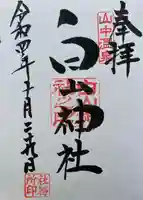 奉拝
山中温泉
白山神社
令和四年十一月二十九日
社務所印